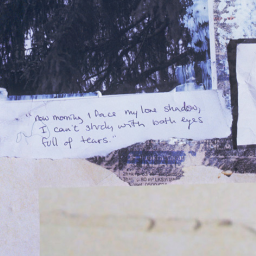 "Now morning, I face my lone shadow,
I can't study with both eyes
full of tears."